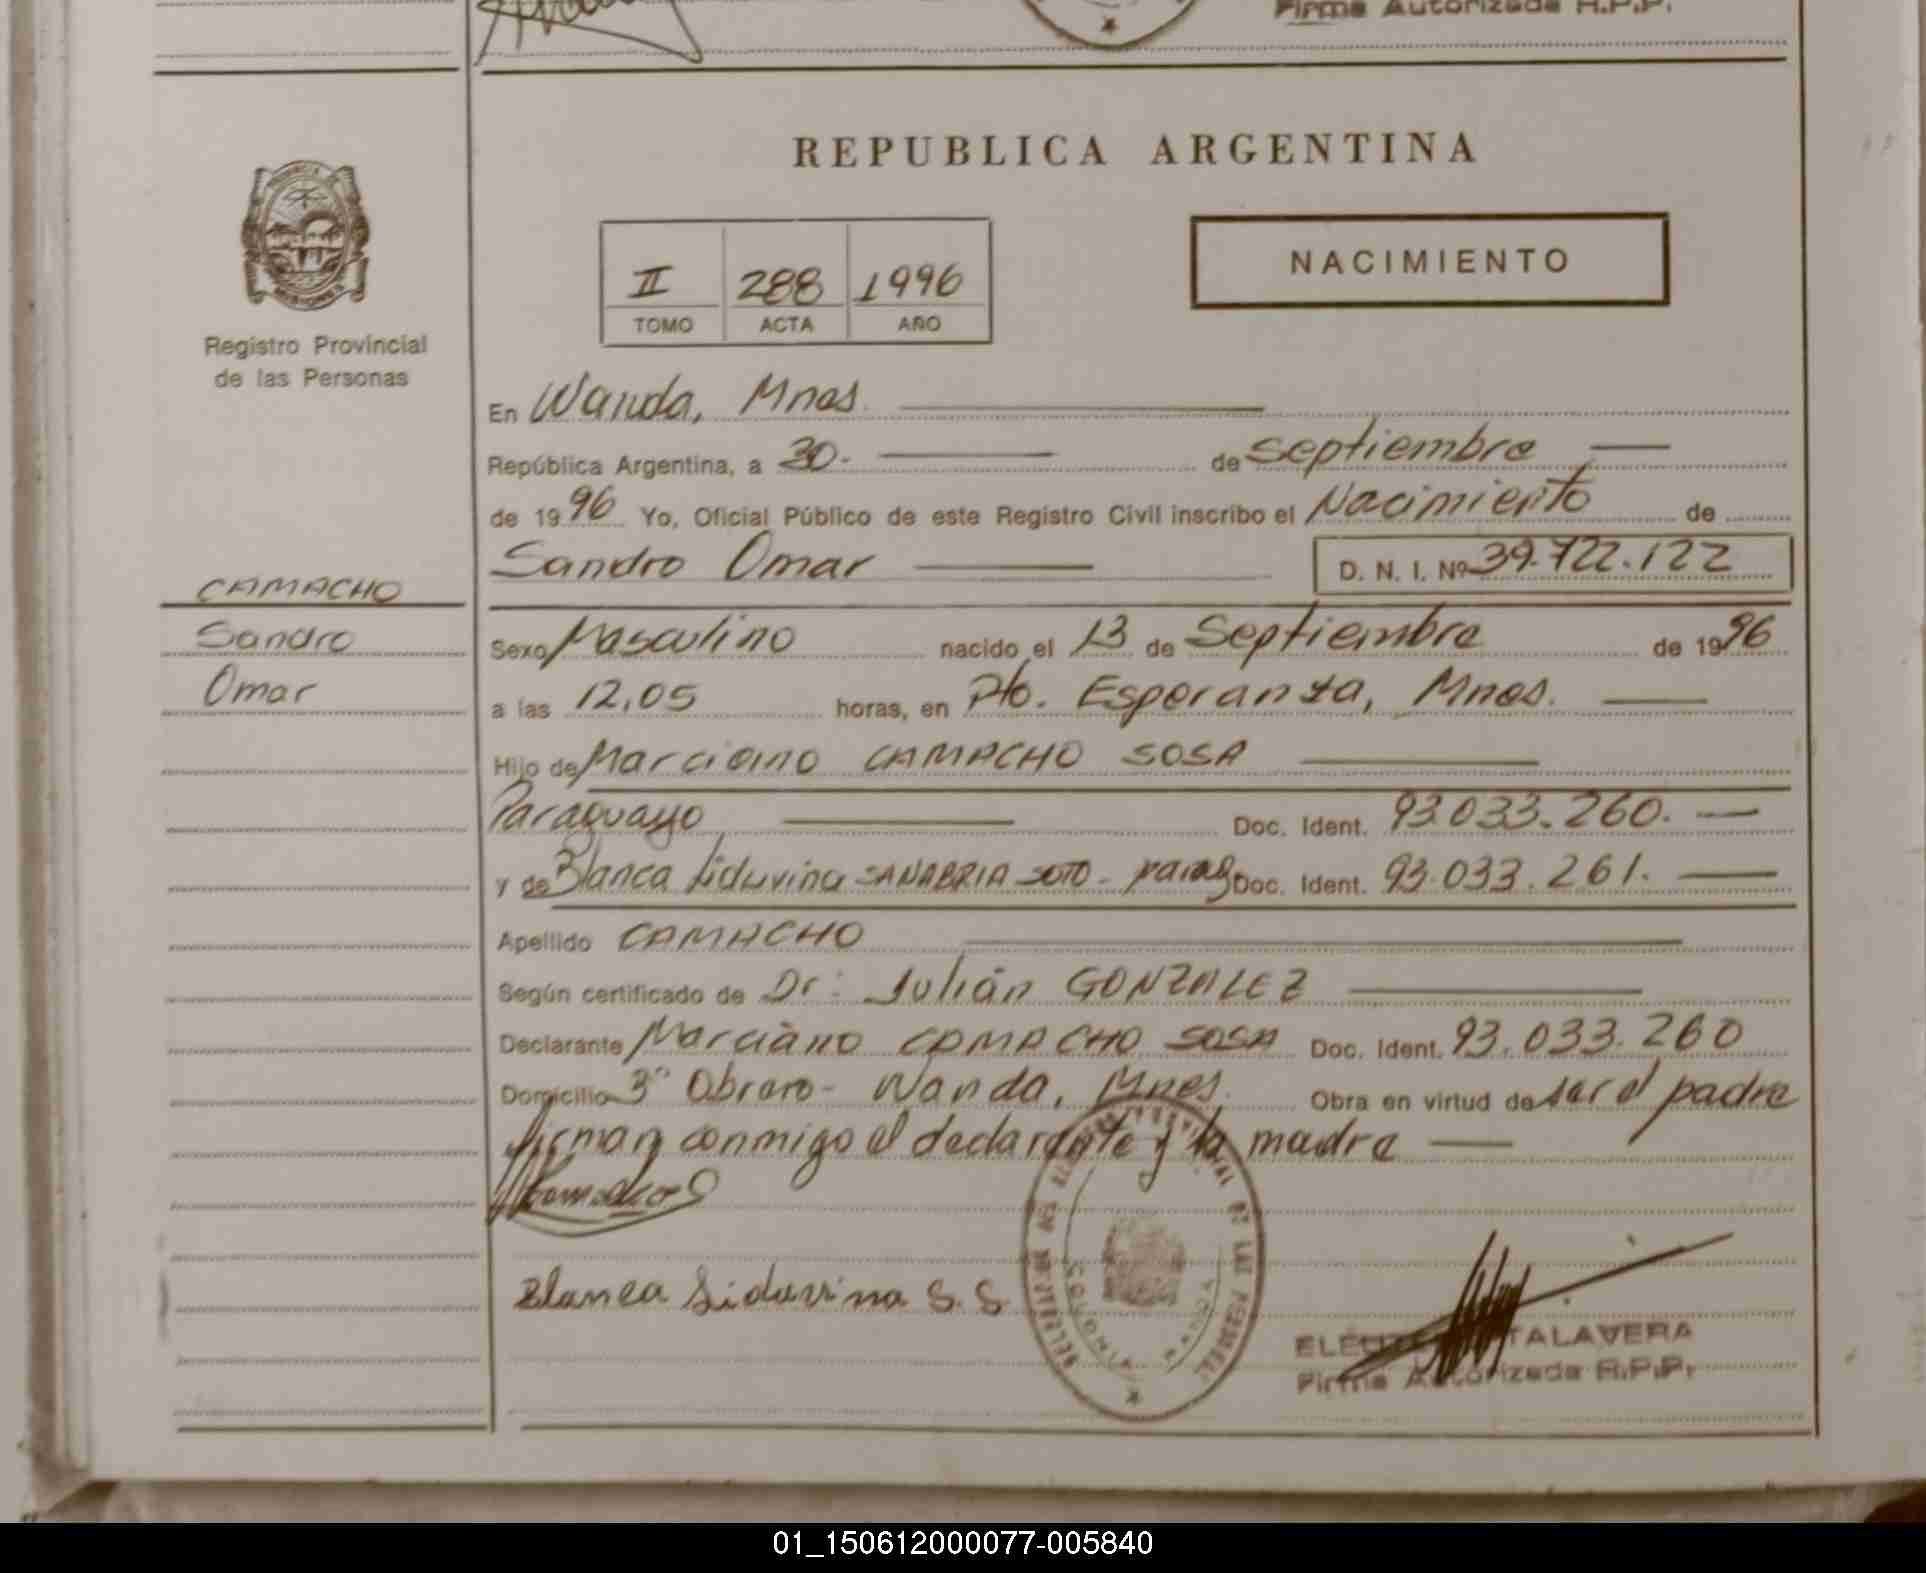 Firma Autorizada R.P.P.
REPUBLICA ARGENTINA
NACIMIENTO
II 288 1996
TOMO ACTA AÑO
Registro Provincial
de las Personas
En Wanda, Mnes.
República Argentina, a 30. de septiembre
de 1996 Yo, Oficial Público de este Registro Civil inscribo el Nacimiento de
Sandro Omar D. N. I. Nº 39.722.122
CAMACHO
Sandro
Omar
Sexo Masculino nacido el 13 de Septiembre de 1996
a las 12,05 horas, en Pto. Esperanza, Mnes.
Hijo de Marciano CAMACHO SOSA
Paraguayo Doc. Ident. 93.033.260.
y de Blanca Liduvina SANABRIA SOTO - parag. Doc. Ident. 93.033.261.
Apellido CAMACHO
Según certificado de Dr: Julián GONZALEZ
Declarante Marciano CAMACHO SOSA Doc. Ident. 93.033.260
Domicilio 3º Obrero - Wanda, Mnes. Obra en virtud de ser el padre
firman conmigo el declarante y la madre
Blanca Liduvina S. S.
COLONIA WANDA
TALAVERA
Firma Autorizada R.P.P.
01_150612000077-005840